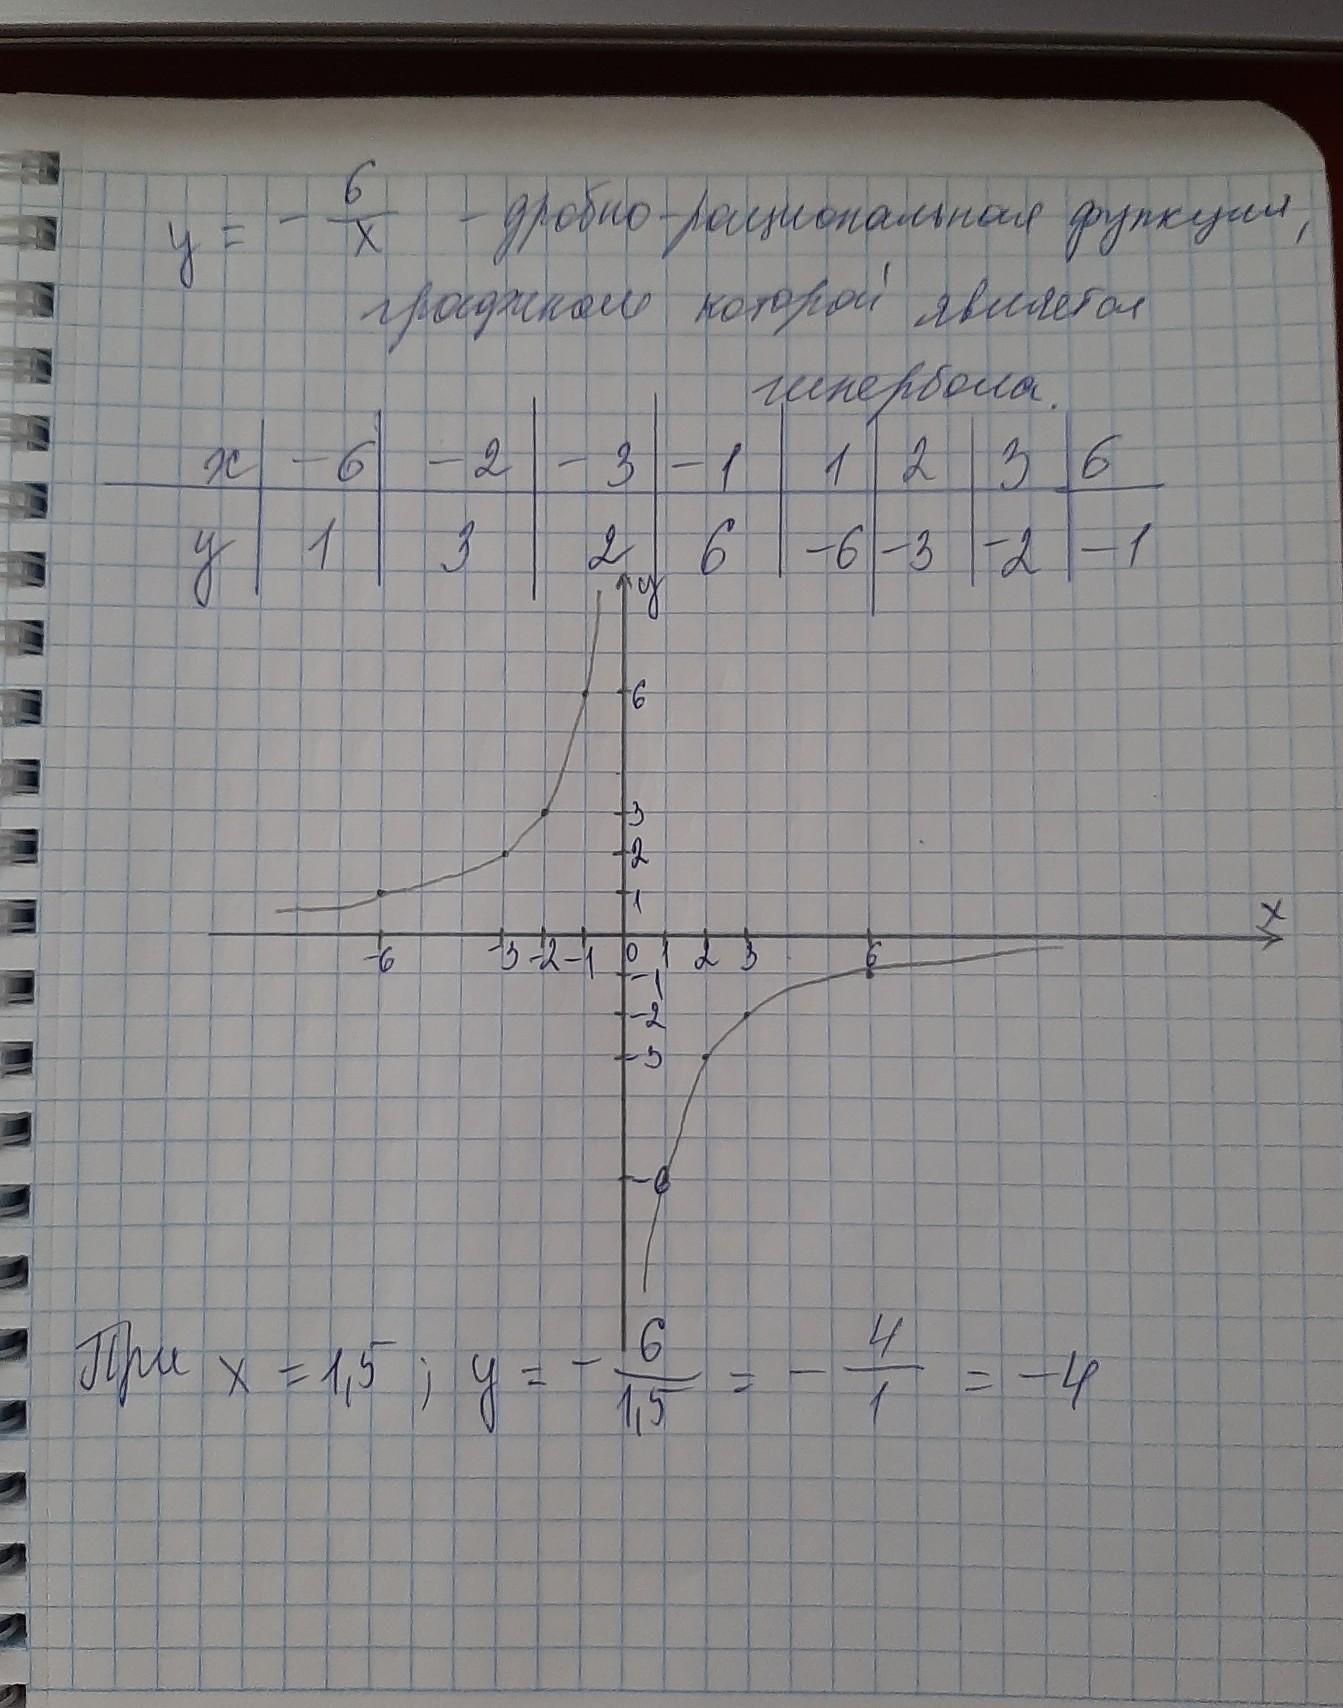 y = - 6/x - дробно-рациональная функция,
графиком которой является
гипербола.
x | -6 | -2 | -3 | -1 | 1 | 2 | 3 | 6
y | 1 | 3 | 2 | 6 | -6 | -3 | -2 | -1
y
6
3
2
1
x
-6 -3 -2 -1 0 1 2 3 6
-1
-2
-3
-6
При x = 1,5 ; y = - 6/1,5 = - 4/1 = -4